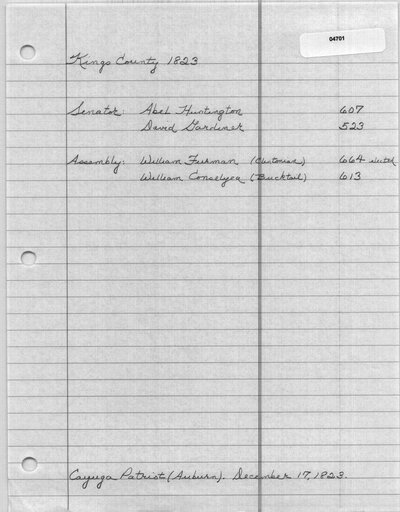 04701
Kings County 1823
Senator: Abel Huntington 607
David Gardiner 523
Assembly: William Furman (Clintonian) 664 elected
William Conselyea (Bucktail) 613
Cayuga Patriot (Auburn). December 17, 1823.